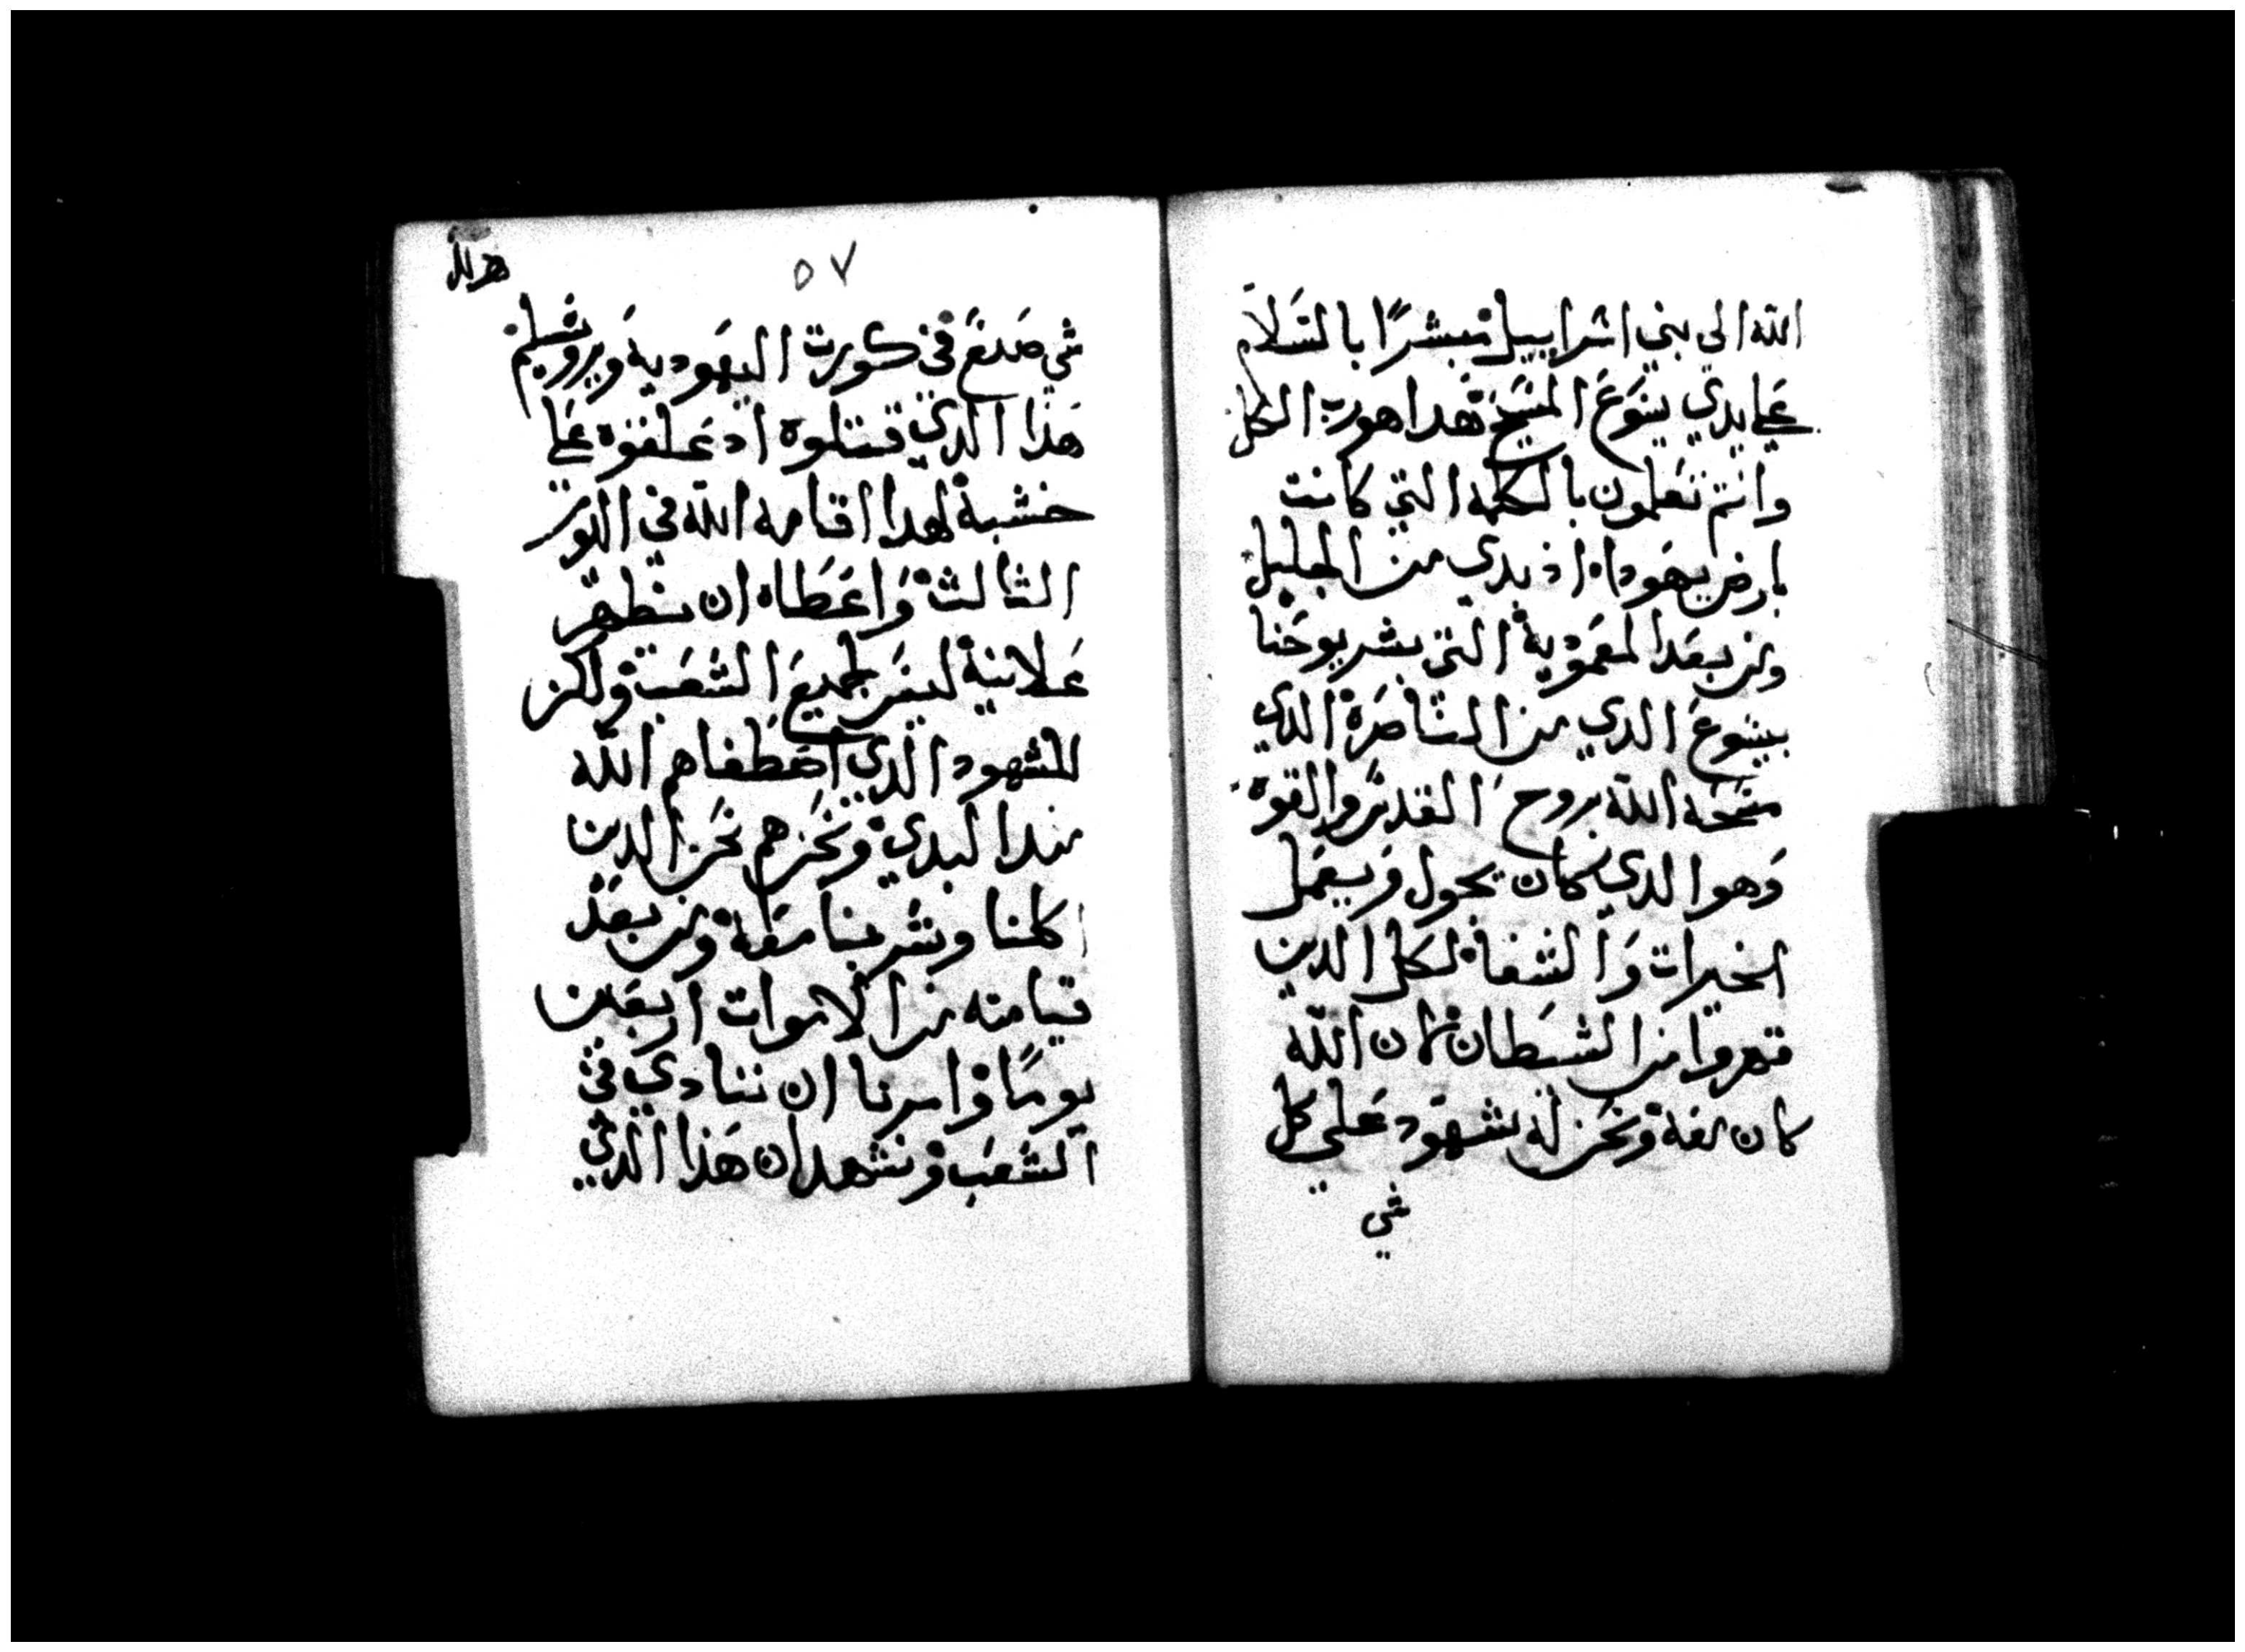 الله الي بني اسراييل مبشرًا بالسَلاَم
عَلي يدي يسَوَعَ المَسَيحَ هدا هو رب الكل
وانتم تعَلمون بالكلمه التي كانت
بارض يهَودا اذ بدي من الجليل
ومن بعَد المعَموَدية التي بشر يوحَنا
بيسَوعَ الدي من الناصَرة الدي
مسَحَه الله بروح القدسَ والقوة
وَهوا الدي كان يجول وَيعَمل
الخيرات وَالشفا لكل الدين
قهروا من الشيَطان لان الله
كان معَة ونحَن له شهَود عَلي كل
شي
٥٧
شي صَنعَ في كورت اليهَودية وَيروشليم
هَذا الذي قتلوه اد عَلقوه عَلي
خشبة لهدا اقامه الله في اليوم
الثالث وَاعَطَاه ان يظهَر
عَلانية ليسَ لجميعَ الشَعَب ولكن
للشهود الذي اصَطَفاهم الله
مند البدي وَنحَن هم نحَن الدين
اكلنا وشَربنا معَة ومن بعَد
قيامته من الاموات اربعَين
يومًا وَامرنا ان ننادي في
الشَعَب وَنشهد ان هَذا الذي